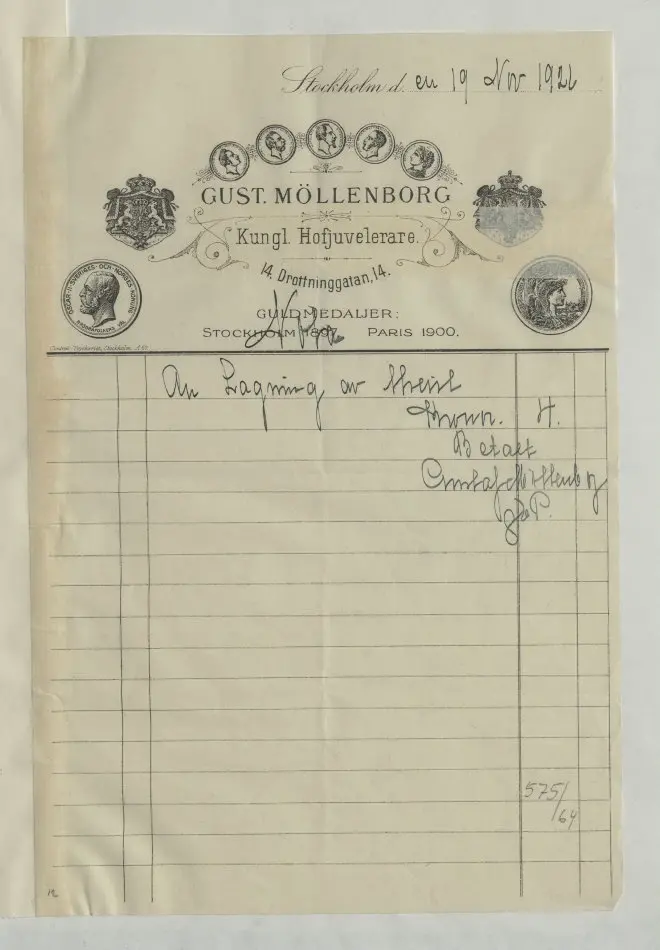 Stockholm d. en 19 Nov 1922
GUST. MÖLLENBORG
Kungl. Hofjuvelerare.
14, Drottninggatan, 14.
OSCAR II SVERIGES OCH NORGES KONUNG
GULDMEDALJER:
STOCKHOLM 1897. PARIS 1900.
Central-Tryckeriet, Stockholm.
An Lagning av
Kronor. 4.
Betalt
Gustaf Möllenborg
575/64
12